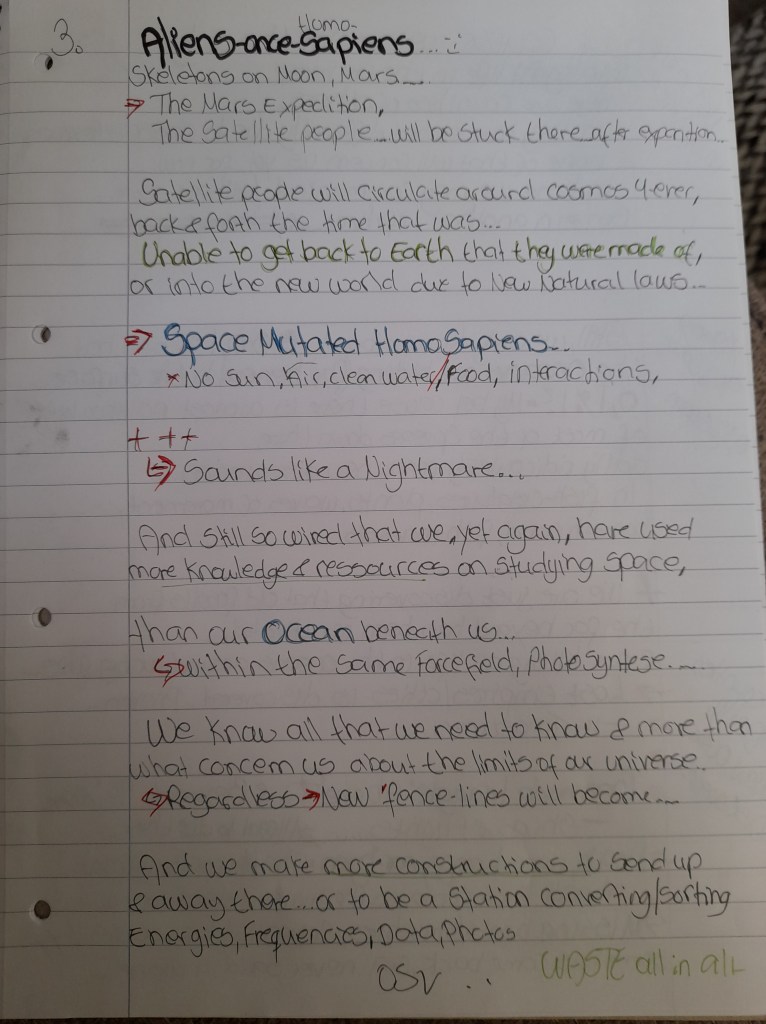 3.
Homo-
Aliens-once-Sapiens... :)
Skeletons on Moon, Mars...
⇒ The Mars Expedition,
The Satellite people... will be stuck there after expantion...
Satellite people will circulate around cosmos 4-ever,
back & forth the time that was...
Unable to get back to Earth that they were made of,
or into the new world due to New Natural laws...
⇒ Space Mutated HomoSapiens...
× No Sun, Air, clean water/Food, interactions,
+ ++
↳ Sounds like a Nightmare...
And still so wired that we, yet again, have used
more knowledge & ressources on studying space,
than our Ocean beneath us...
↳ within the same Forcefield, PhotoSyntese...
We know all that we need to know & more than
what concern us about the limits of our universe..
↳ Regardless → New 'fence-lines will become...
And we make more constructions to send up
& away there... or to be a Station converting/sorting
Energies, Frequencies, Data, Photos
OSV ..
WASTE all in all